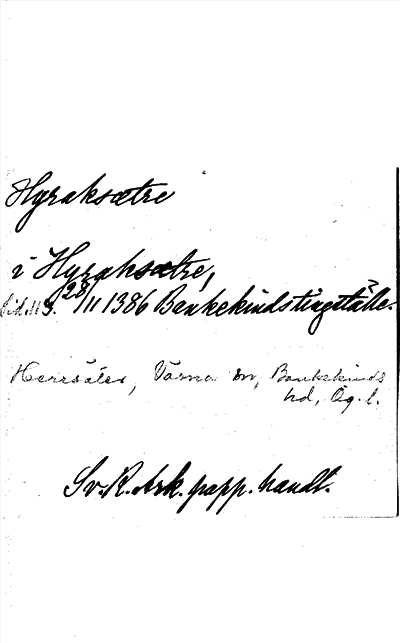 Hyraksætre
i Hyraksætre,
28/11 1386 Bankekindstingställe.
Herrsäter, Värna sn, Bankekinds
hd, Ög. l.
Sv. R. Ark. papp. handl.